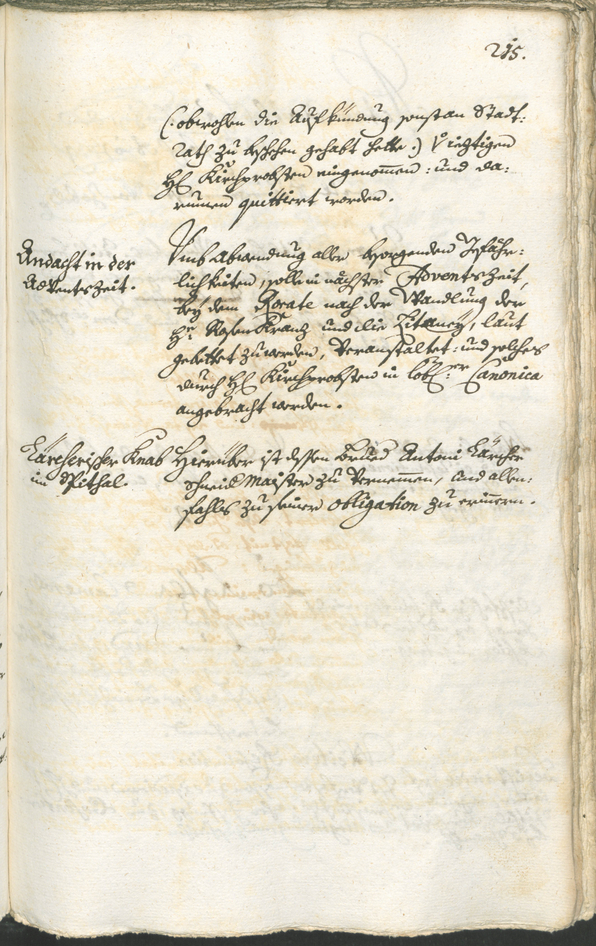 215.
(: obwohlen die Aufkündung sonst an Stadt:
rath zu beschehen gehabt hette :) V ichtigen
H: Kirchprobsten eingenommen: und da:
rumen quittiert worden.
Andacht in der
Adventszeit.
Umb Abwendung aller besorgenden Gefähr:
lichkeiten, solle in nächster Adventszeit,
bey dem Rorate nach der Wandlung der
H: Rosen Kranz und die Litaney, laut
gebettet zu werden, veranstaltet: und solches
durch H: Kirchprobsten in löbl:er Canonica
angebracht werden.
Kärcherischer Knab
im Spithal.
Hierüber ist dessen Brued Antoni Kärcher
Schneid Maister zu vernemmen, und allen:
fahls zu seiner obligation zu erinnern.